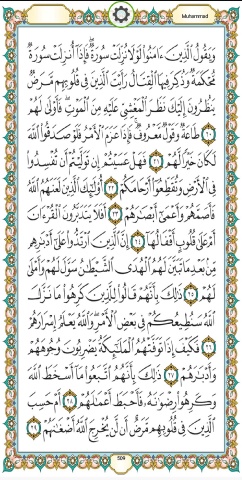 Muhammad
وَيَقُولُ ٱلَّذِينَ ءَامَنُوا۟ لَوْلَا نُزِّلَتْ سُورَةٌ ۖ فَإِذَآ أُنزِلَتْ سُورَةٌ
مُّحْكَمَةٌ وَذُكِرَ فِيهَا ٱلْقِتَالُ ۙ رَأَيْتَ ٱلَّذِينَ فِى قُلُوبِهِم مَّرَضٌ
يَنظُرُونَ إِلَيْكَ نَظَرَ ٱلْمَغْشِىِّ عَلَيْهِ مِنَ ٱلْمَوْتِ ۖ فَأَوْلَىٰ لَهُمْ
٢٠ طَاعَةٌ وَقَوْلٌ مَّعْرُوفٌ ۚ فَإِذَا عَزَمَ ٱلْأَمْرُ فَلَوْ صَدَقُوا۟ ٱللَّهَ
لَكَانَ خَيْرًا لَّهُمْ ٢١ فَهَلْ عَسَيْتُمْ إِن تَوَلَّيْتُمْ أَن تُفْسِدُوا۟
فِى ٱلْأَرْضِ وَتُقَطِّعُوٓا۟ أَرْحَامَكُمْ ٢٢ أُو۟لَـٰٓئِكَ ٱلَّذِينَ لَعَنَهُمُ ٱللَّهُ
فَأَصَمَّهُمْ وَأَعْمَىٰٓ أَبْصَـٰرَهُمْ ٢٣ أَفَلَا يَتَدَبَّرُونَ ٱلْقُرْءَانَ
أَمْ عَلَىٰ قُلُوبٍ أَقْفَالُهَآ ٢٤ إِنَّ ٱلَّذِينَ ٱرْتَدُّوا۟ عَلَىٰٓ أَدْبَـٰرِهِم
مِّنۢ بَعْدِ مَا تَبَيَّنَ لَهُمُ ٱلْهُدَى ۙ ٱلشَّيْطَـٰنُ سَوَّلَ لَهُمْ وَأَمْلَىٰ
لَهُمْ ٢٥ ذَٰلِكَ بِأَنَّهُمْ قَالُوا۟ لِلَّذِينَ كَرِهُوا۟ مَا نَزَّلَ
ٱللَّهُ سَنُطِيعُكُمْ فِى بَعْضِ ٱلْأَمْرِ ۖ وَٱللَّهُ يَعْلَمُ إِسْرَارَهُمْ
٢٦ فَكَيْفَ إِذَا تَوَفَّتْهُمُ ٱلْمَلَـٰٓئِكَةُ يَضْرِبُونَ وُجُوهَهُمْ
وَأَدْبَـٰرَهُمْ ٢٧ ذَٰلِكَ بِأَنَّهُمُ ٱتَّبَعُوا۟ مَآ أَسْخَطَ ٱللَّهَ
وَكَرِهُوا۟ رِضْوَٰنَهُۥ فَأَحْبَطَ أَعْمَـٰلَهُمْ ٢٨ أَمْ حَسِبَ
ٱلَّذِينَ فِى قُلُوبِهِم مَّرَضٌ أَن لَّن يُخْرِجَ ٱللَّهُ أَضْغَـٰنَهُمْ ٢٩
509